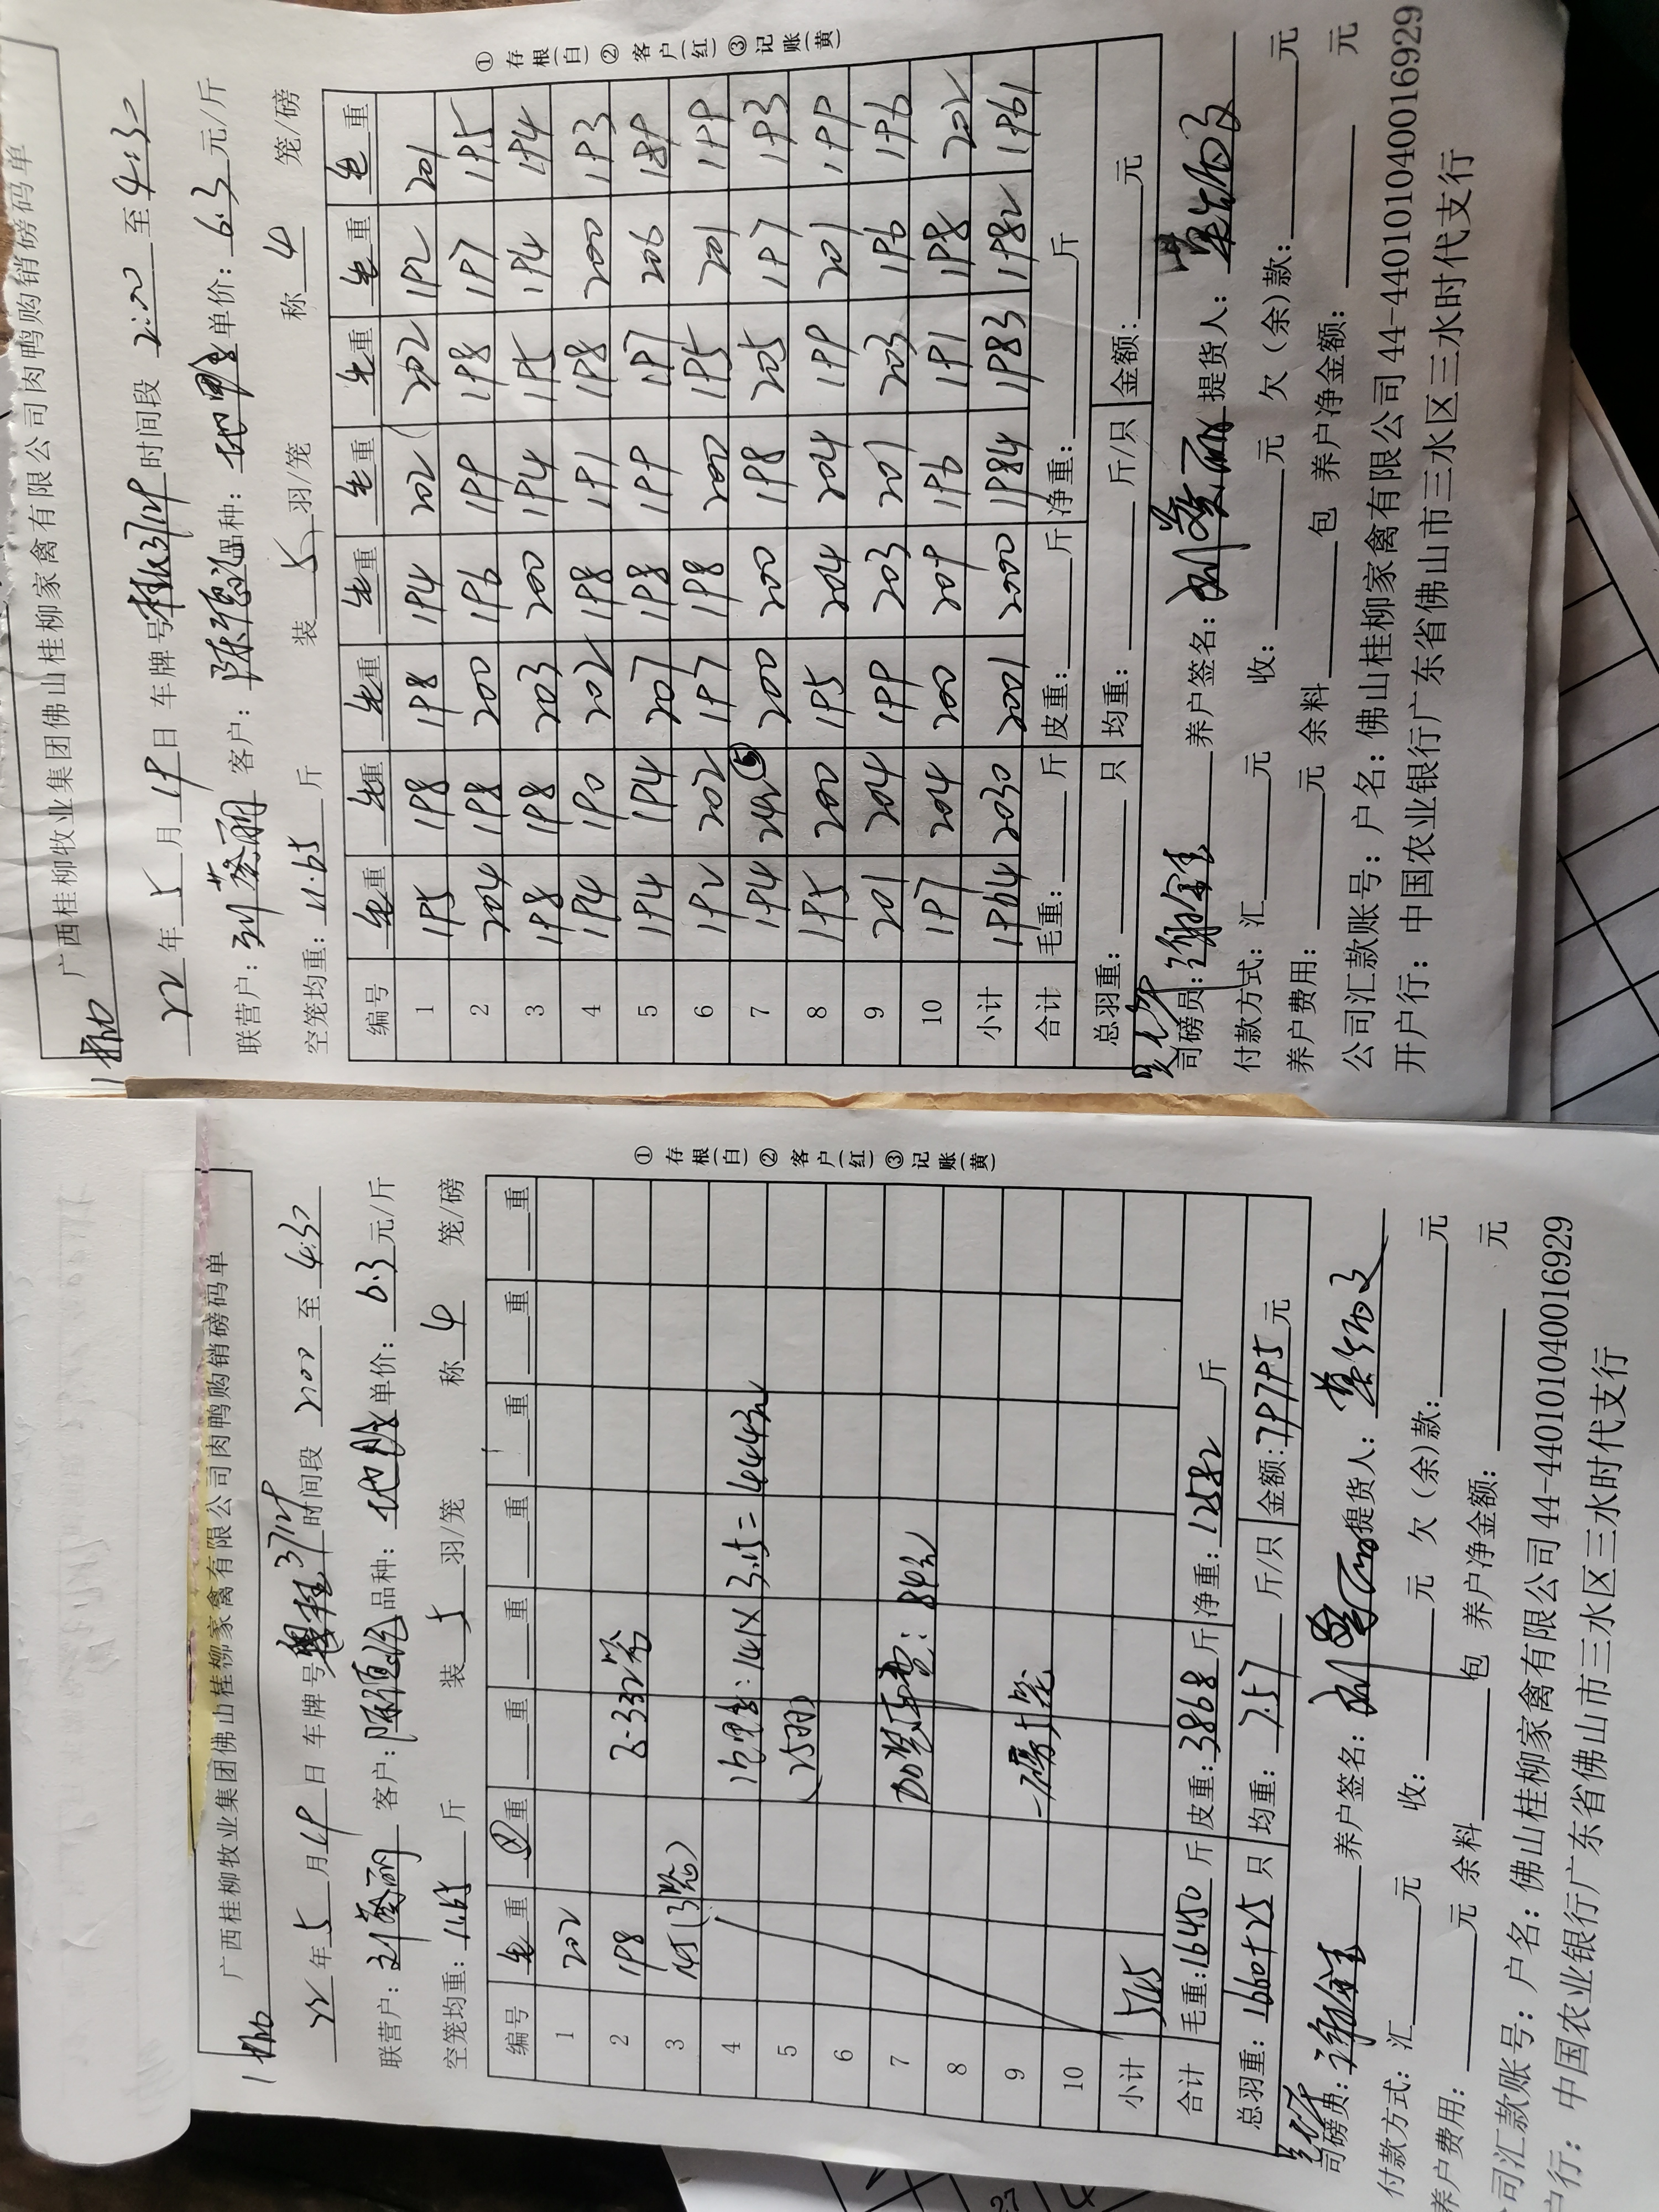 广西桂柳牧业集团佛山桂柳家禽有限公司肉鸭购销磅码单
22年5月19日 车牌号 时间段 2:00 至 4:30
联营户: 客户: 品种: 单价: 6.3 元/斤
空笼均重: 11.65 斤 装 5 羽/笼 称 4 笼/磅
编号 毛重 毛重 毛重 毛重 毛重 毛重 毛重 毛重
1 195 198 198 194 202 202 192 201
2 204 198 200 196 199 198 197 195
3 198 198 203 200 194 195 194 194
4 194 190 202 198 191 198 200 193
5 194 194 207 198 199 197 206 189
6 192 202 197 198 200 195 201 199
7 194 242 ⑤ 200 200 198 205 197 193
8 195 200 195 204 204 199 201 199
9 201 204 199 203 201 203 196 196
10 197 204 200 209 196 191 198 202
小计 1964 2030 2001 2000 1984 1983 1982 1961
合计 毛重: 斤 皮重: 斤 净重: 斤
总羽重: 只 均重: 斤/只 金额: 元
司磅员: 养户签名: 提货人:
付款方式: 汇 元 收: 元 欠(余)款: 元
养户费用: 元 余料 包 养户净金额: 元
公司汇款账号: 户名: 佛山桂柳家禽有限公司 44-440101040016929
开户行: 中国农业银行广东省佛山市三水区三水时代支行
①存根(白) ②客户(红) ③记账(黄)
广西桂柳牧业集团佛山桂柳家禽有限公司肉鸭购销磅码单
22年5月19日 车牌号 时间段 2:00 至 4:30
联营户: 客户: 品种: 单价: 6.3 元/斤
空笼均重: 11.65 斤 装 5 羽/笼 称 4 笼/磅
编号 毛重 重 重 重 重 重 重 重
1 202
2 198 332笼
3 145(3笼)
4 141×3.15=444元
5 (25羽)
6
7 加装车费: 89元
8
9
10
小计 545
合计 毛重: 16450 斤 皮重: 3868 斤 净重: 12582 斤
总羽重: 1660+25 只 均重: 7.57 斤/只 金额: 79795 元
司磅员: 养户签名: 提货人:
付款方式: 汇 元 收: 元 欠(余)款: 元
养户费用: 元 余料 包 养户净金额: 元
司汇款账号: 户名: 佛山桂柳家禽有限公司 44-440101040016929
户行: 中国农业银行广东省佛山市三水区三水时代支行
①存根(白) ②客户(红) ③记账(黄)